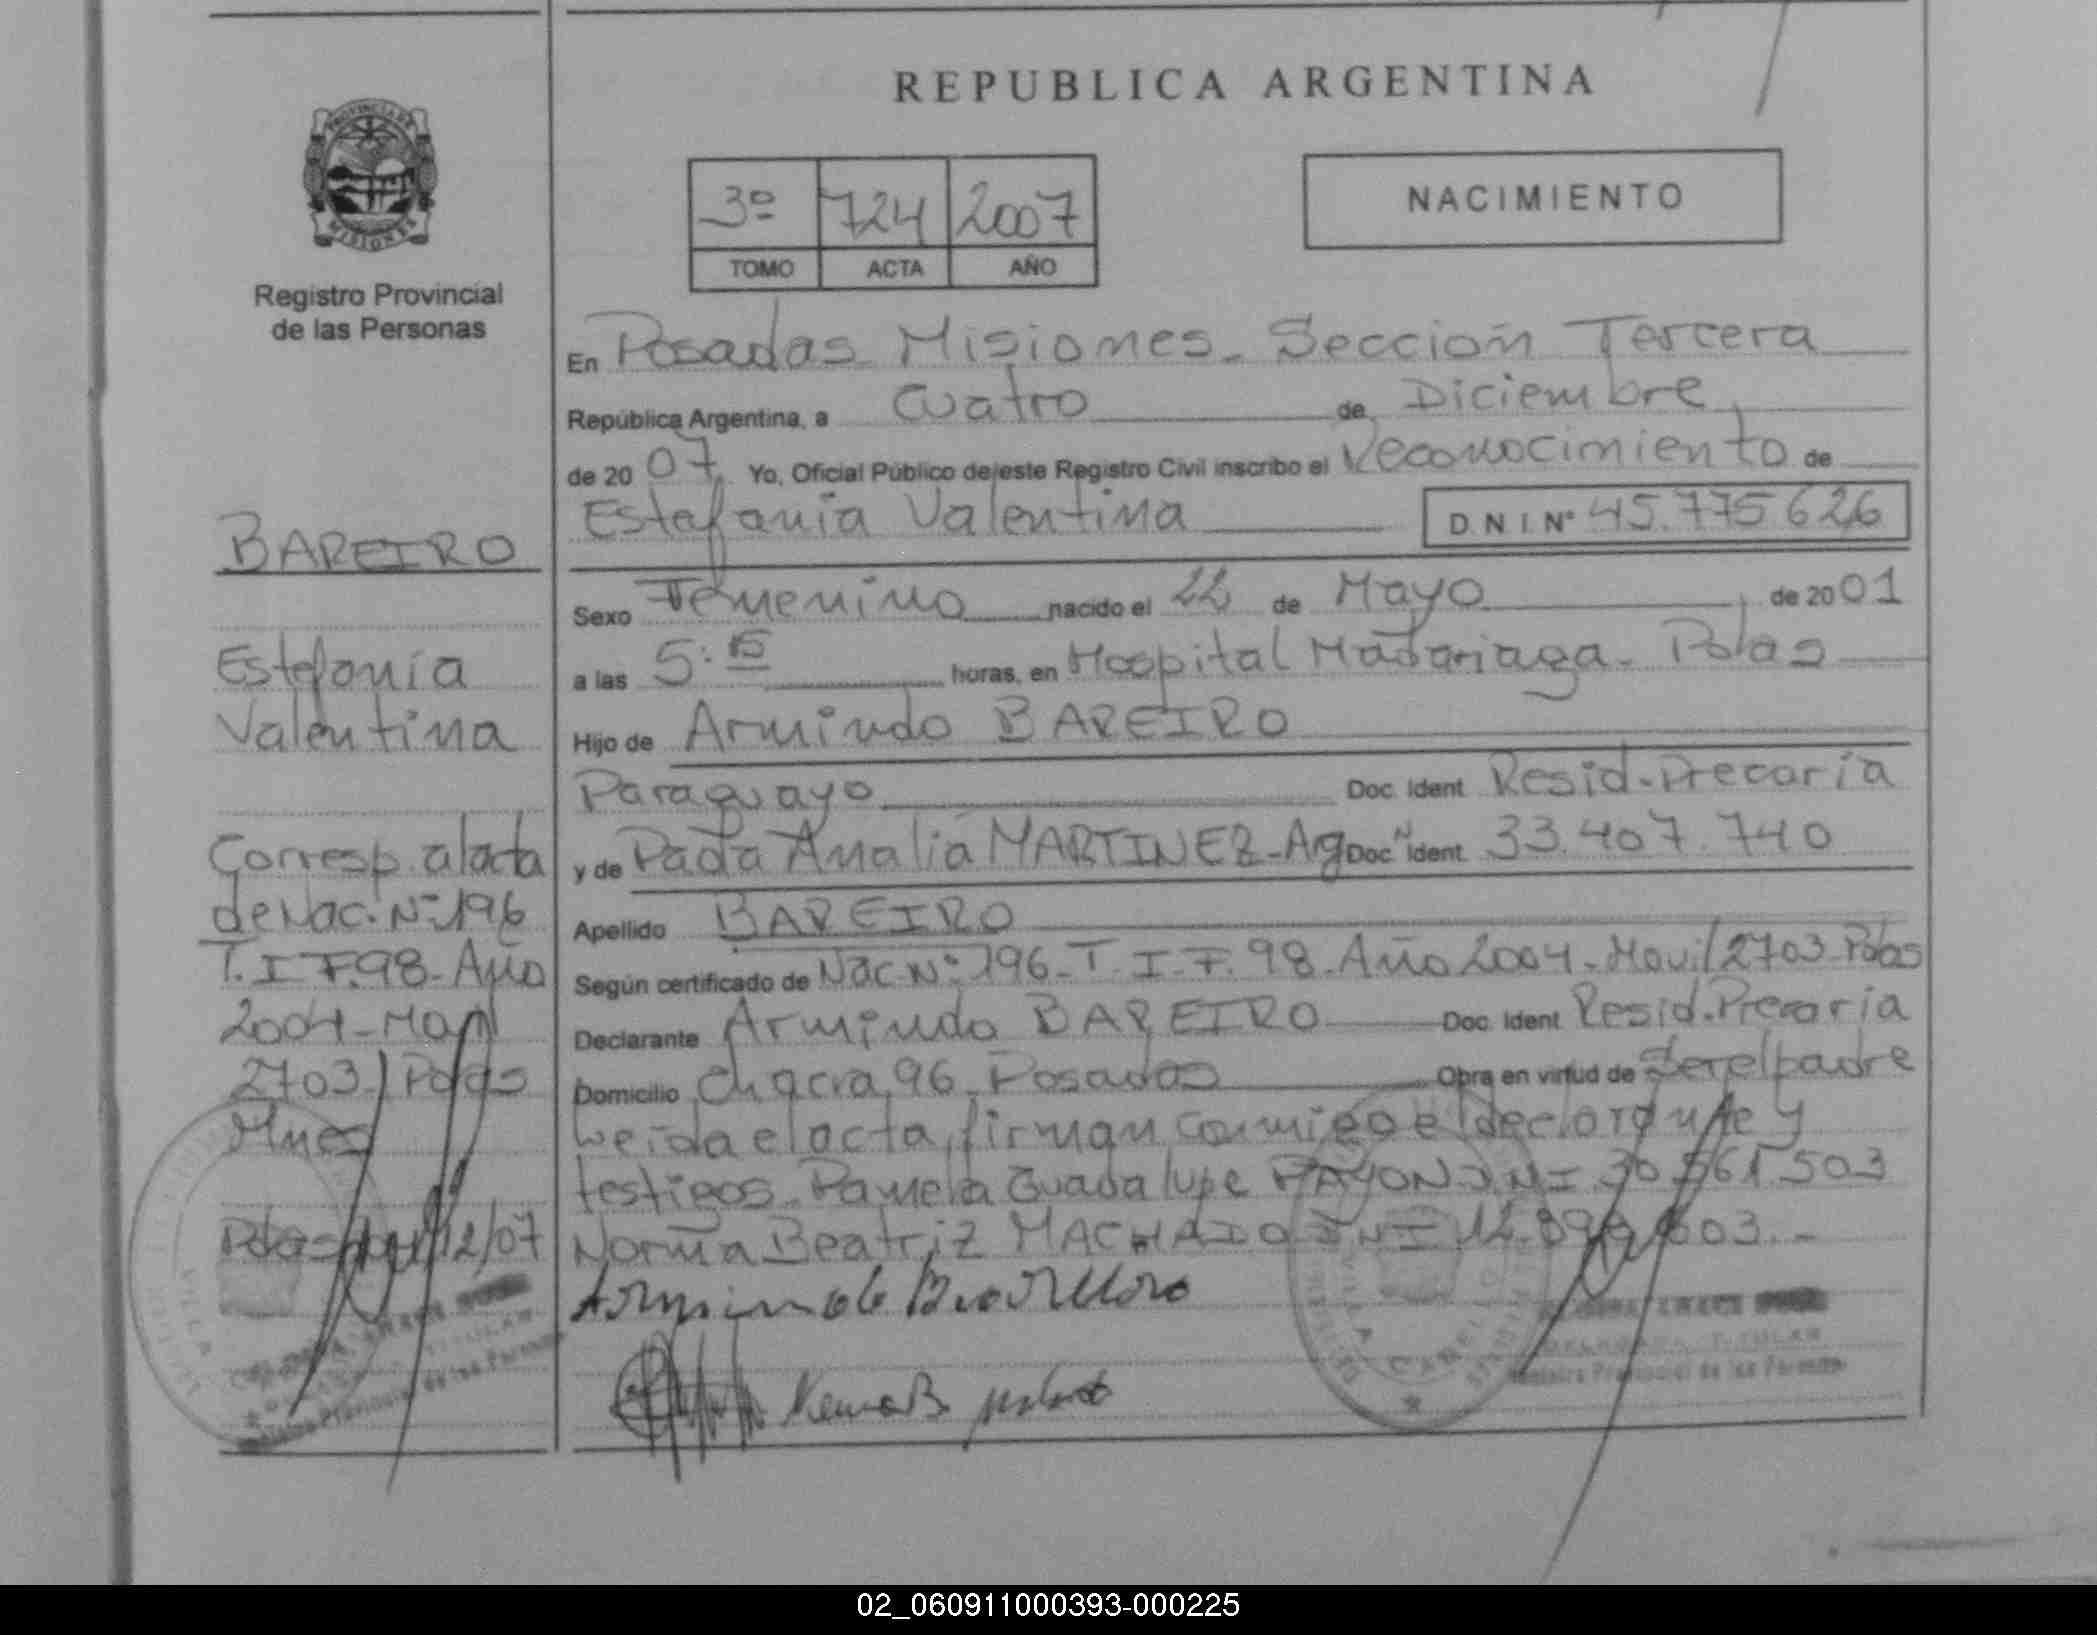 REPUBLICA ARGENTINA
PROVINCIA DE
MISIONES
Registro Provincial
de las Personas
3º 724 2007
TOMO ACTA AÑO
NACIMIENTO
En Posadas Misiones. Sección Tercera
República Argentina, a Cuatro de Diciembre
de 20 07. Yo, Oficial Público de este Registro Civil inscribo el Reconocimiento de
Estefanía Valentina D.N.I. Nº 45.775626
Sexo Femenino nacido el 22 de Mayo, de 20 01
a las 5:15 horas, en Hospital Madariaga. Pdas
Hijo de Armindo BAREIRO
Paraguayo Doc. Ident. Resid. Precaria
y de Analía MARTINEZ - Ag Doc. Ident. 33.407.740
Apellido BAREIRO
Según certificado de Nac. Nº 196. T. I. F. 98. Año 2004. Movil 2703 Pdas
Declarante Armindo BAREIRO Doc. Ident. Resid. Precaria
Domicilio Chacra 96. Posadas Obra en virtud de ser el padre
Leída el acta, firman conmigo el declarante y
testigos. Pamela Guadalupe PAYON D.N.I. 30.561.503
Norma Beatriz MACHADO DNI 12.
BAREIRO
Estefanía
Valentina
Corresp. al acta
de Nac. Nº 196
T. I F. 98 - Año
2004 - Movil
2703 / Pdas
Mnes
Pdas 12/07
02_060911000393-000225